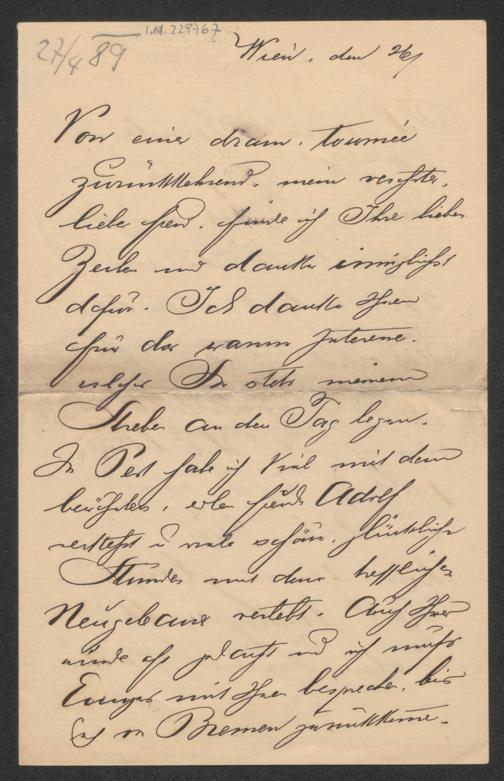 I.N. 229767
27/4 89
Wien, den 26/
Von einer dram. Tournée
zurückkehrend, mein verehrter,
lieber Freund, finde ich Ihre lieben
Zeilen und danke innigst
dafür. Ich danke Ihnen
für das warme Interesse,
welches Sie stets meinem
Streben an den Tag legen.
In Pest habe ich viel mit dem
berühmten, edlen Freunde Adolf
verkehrt u viele schöne, glückliche
Stunden mit dem trefflichen
Neugebauer verlebt. Auch Ihrer
wurde oft gedacht und ich muß
Einiges mit Ihnen besprechen, bis
ich von Bremen zurückkomme.